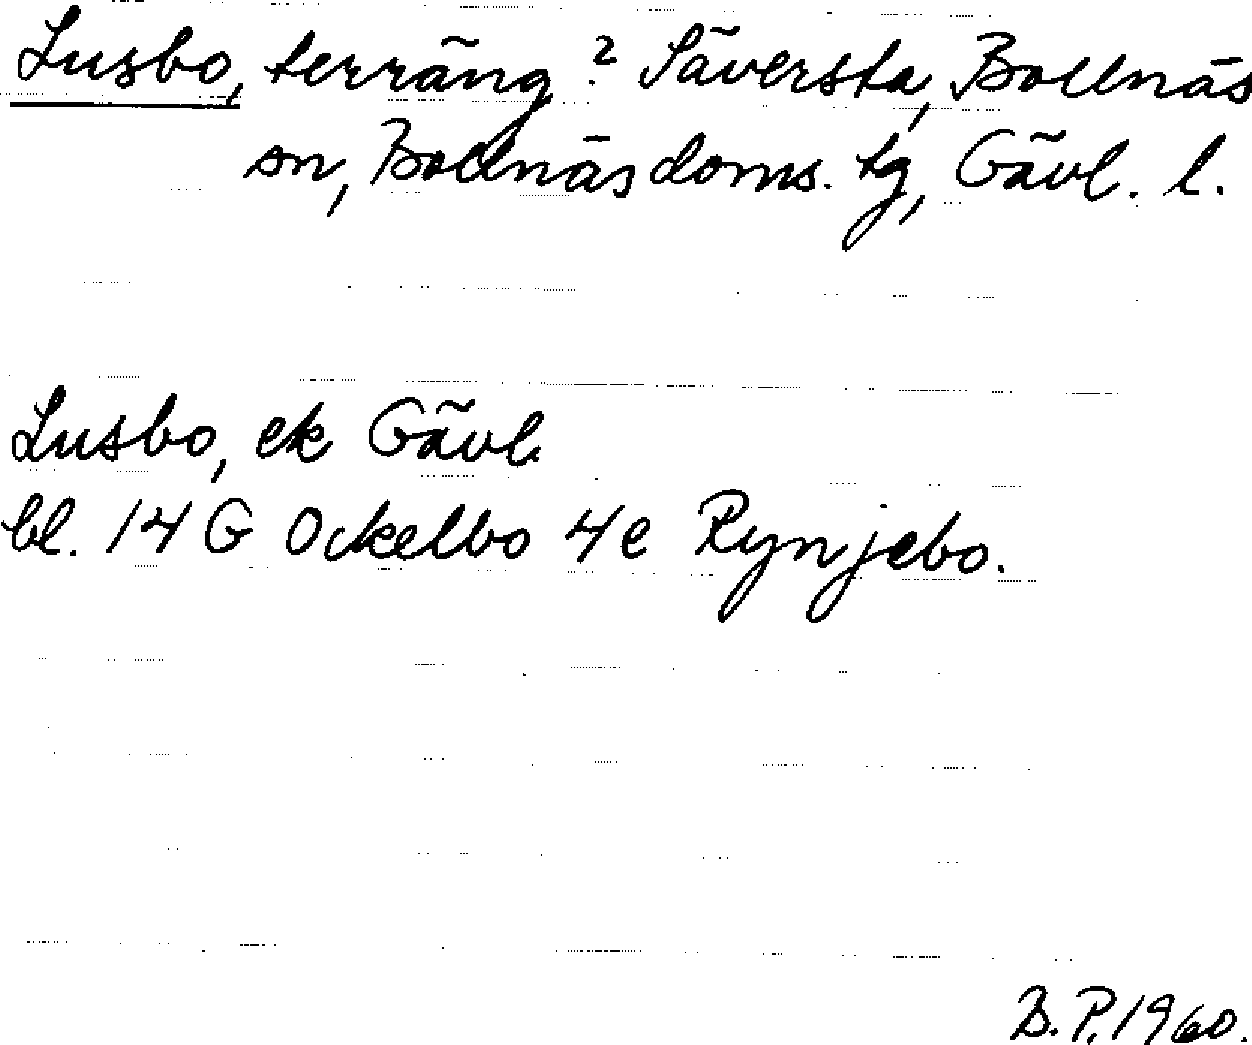 Lusbo, terräng? Säversta, Bollnäs
sn, Bollnäs doms. tg, Gävl. l.
Lusbo, ek Gävl.
bl. 14 G Ockelbo 4e Rynjebo.
B. P. 1960.